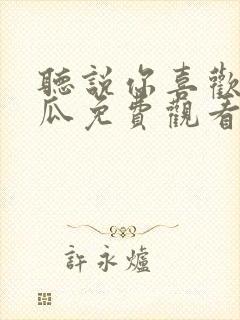 聽說你喜歡
瓜免費觀看
許永爐